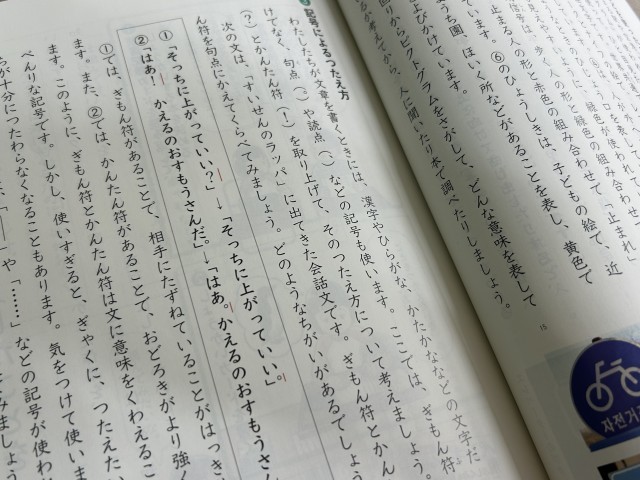 信号は、
緑色が使われ
人の形と緑色の組み合わせで
止まる人の形と赤色の組み合わせで「止まれ」
ています。⑥のひょうしきは、子どもの絵で、近
ち園、ほいく所などがあることを表し、黄色で
よびかけています。
回りからピクトグラムをさがして、どんな意味を表して
るか考えてから、人に聞いたり本で調べたりしましょう。
15
자전거
記号によるつたえ方
わたしたちが文章を書くときには、漢字やひらがな、かたかななどの文字だ
けでなく、句点（。）や読点（、）などの記号も使います。ここでは、ぎもん符
（？）とかんたん符（！）を取り上げて、そのつたえ方について考えましょう。
次の文は、「すいせんのラッパ」に出てきた会話文です。ぎもん符とかん
ん符を句点にかえてくらべてみましょう。どのようなちがいがあるでしょう
①「そっちに上がっていい？」→「そっちに上がっていい。」
②「はあ！かえるのおすもうさんだ。」→「はあ。かえるのおすもうさん
①では、ぎもん符があることで、相手にたずねていることがはっき
ます。また、②では、かんたん符があることで、おどろきがより強く
ます。このように、ぎもん符とかんたん符は文に意味をくわえるこ
べんりな記号です。しかし、使いすぎると、ぎゃくに、つたえたい
ちが十分につたわらなくなることもあります。気をつけて使いま
や「……」などの記号が使わ